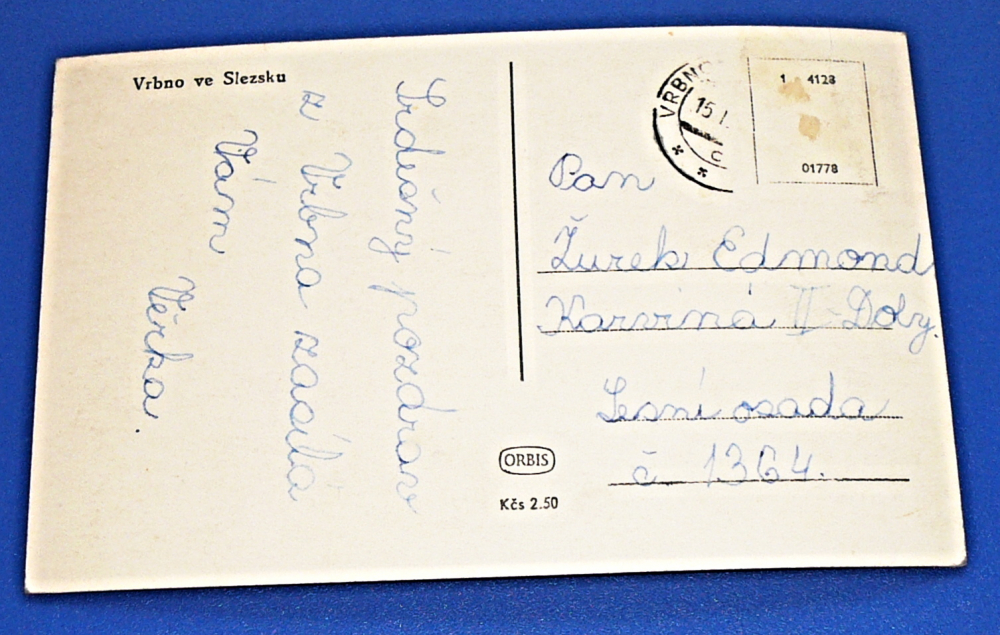 Vrbno ve Slezsku
Srdečný pozdrav
z Vrbna zasílá
Vám
Věrka.
VRBNO
15.I.
c
1 4128
01778
Pan
Žurek Edmond
Karviná II-Doly.
Lesní osada
č 1364.
ORBIS
Kčs 2.50